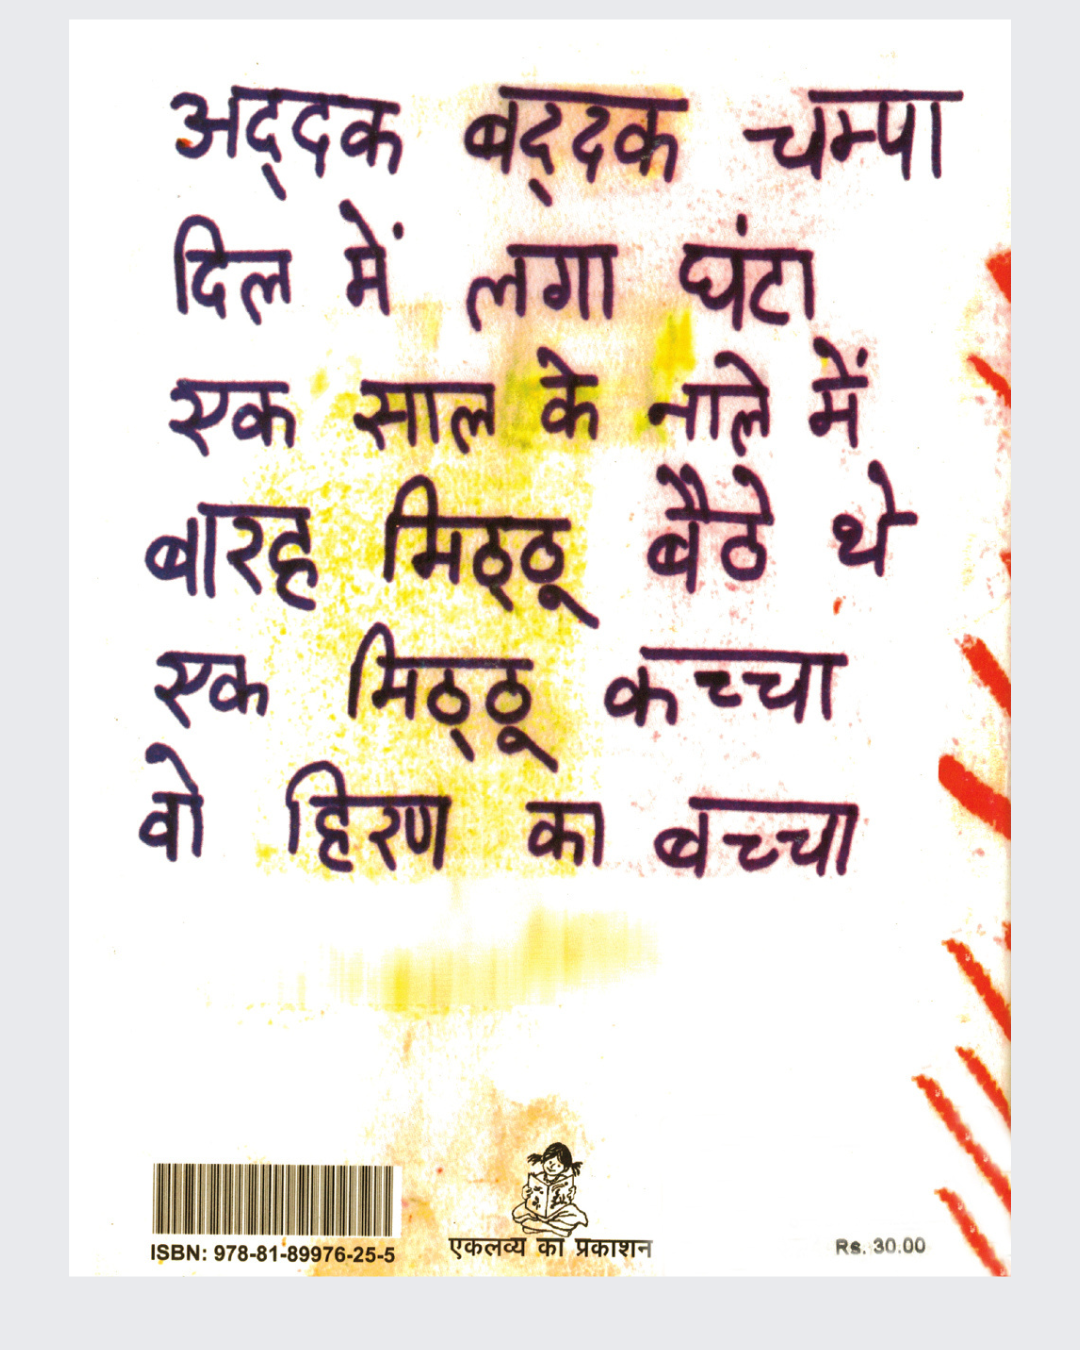 अद्दक बद्दक चम्पा
दिल में लगा घंटा
एक साल के नाले में
बारह मिठ्ठू बैठे थे
एक मिठ्ठू कच्चा
वो हिरण का बच्चा
ISBN: 978-81-89976-25-5
एकलव्य का प्रकाशन
Rs. 30.00